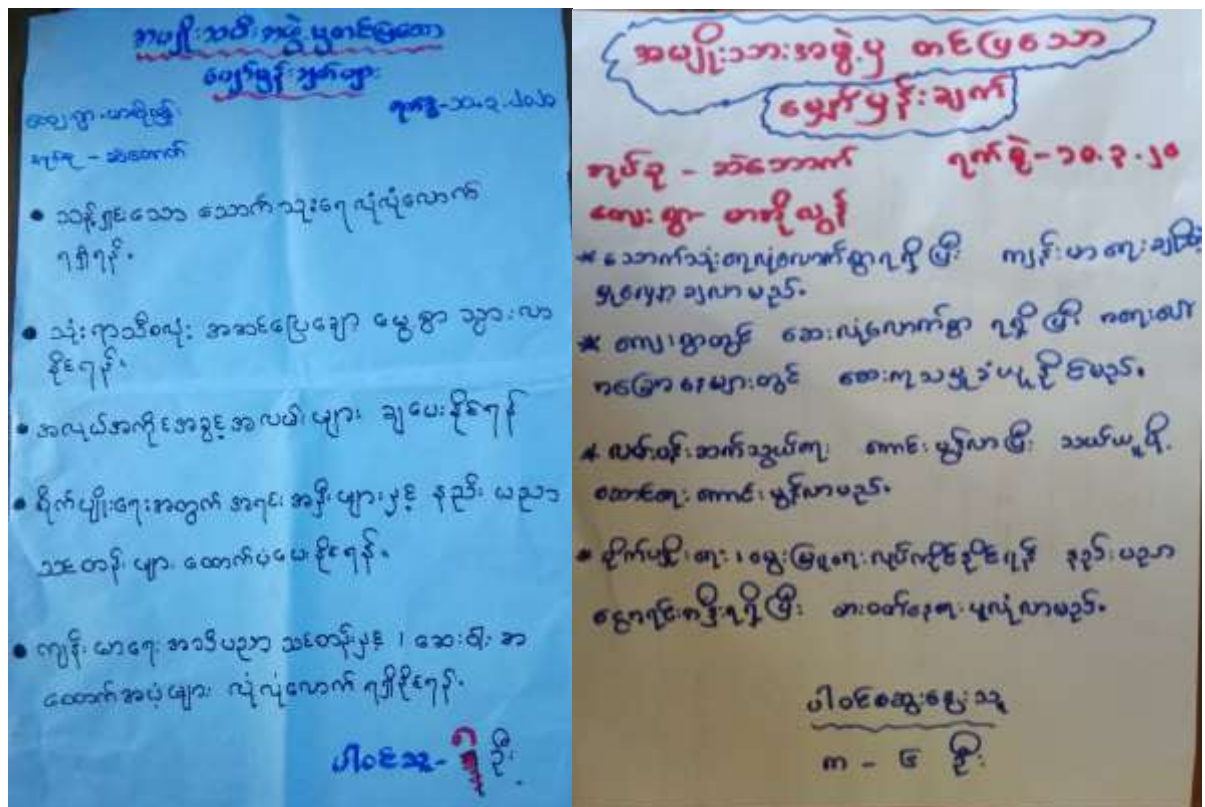 အမျိုးသမီးအဖွဲ့မှတင်ပြသော
မျှော်မှန်းချက်များ
ကျေးရွာ-မာတိုလွန်
ရက်စွဲ-၁၀.၃.၂၀၂၀
အုပ်စု - ဆဲဘောက်
• သန့်ရှင်းသော သောက်သုံးရေ လုံလုံလောက်
ရရှိရန်။
• သုံးရာသီစလုံး အဆင်ပြေချော မွေ့စွာ သွားလာ
နိုင်ရန်။
• အလုပ်အကိုင်အခွင့်အလမ်းများ ချပေးနိုင်ရန်
• စိုက်ပျိုးရေးအတွက် အရင်းအနှီးများနှင့် နည်းပညာ
သင်တန်းများ ထောက်ပံ့ပေးနိုင်ရန်။
• ကျန်းမာရေး အသိပညာ သင်တန်းနှင့် ၊ ဆေးဝါး အ
ထောက်အပံ့များ လုံလုံလောက် ရရှိနိုင်ရန်။
ပါဝင်သူ- ဦး
အမျိုးသားအဖွဲ့မှ တင်ပြသော
မျှော်မှန်းချက်
အုပ်စု - ဆဲဘောက် ရက်စွဲ-၁၀.၃.၂၀
ကျေးရွာ- မာတိုလွန်
* သောက်သုံးရေလုံလောက်စွာရရှိပြီး ကျန်းမာရေးချို့တဲ့
မှုလျော့ချလာမည်။
* ကျေးရွာတွင် ဆေးလုံလောက်စွာ ရရှိပြီး အရေးပေါ်
အခြေအနေများတွင် ဆေးကုသမှုခံယူနိုင်မည်။
* လမ်းပန်းဆက်သွယ်ရေး ကောင်းမွန်လာပြီး သယ်ယူပို့
ဆောင်ရေး ကောင်းမွန်လာမည်။
* စိုက်ပျိုးရေး ၊ မွေးမြူရေးလုပ်ကိုင်နိုင်ရန် နည်းပညာ
ငွေရင်းနှီးရရှိပြီး စားဝတ်နေရေး ဖူလုံလာမည်။
ပါဝင်ဆွေးနွေးသူ
ကျား - ၆ ဦး